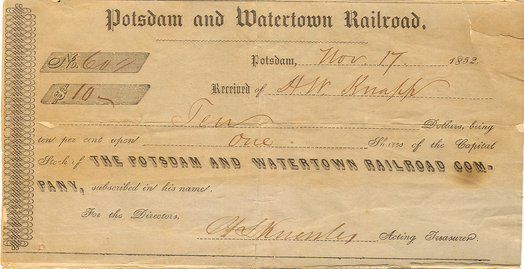 Potsdam and Watertown Railroad.
No. 604
Potsdam, Nov. 17 1852.
$ 10
Received of A W. Knapp
Ten Dollars, being
ten per cent upon one Shares of the Capital
Stock of THE POTSDAM AND WATERTOWN RAILROAD COM-
PANY, subscribed in his name.
For the Directors,
Acting Treasurer.